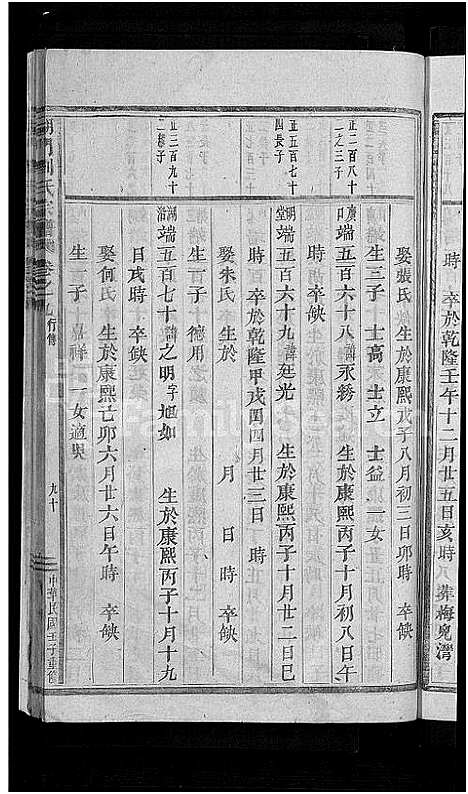 時 卒於乾隆壬午十二月廿五日亥時 葬梅兒灣
娶張氏 生於康熙戊子八月初三日卯時 卒缺
生三子 士高 士立 士益 一女
正二百八十二之三子
端五百六十八 諱永綉 生於康熙丙子十月初八日午
時 卒缺
正五百七十四長子
明堂 端五百六十九 諱廷光 生於康熙丙子十月廿二日巳
時 卒於乾隆甲戌閏四月廿三日 時
娶朱氏 生於 月 日 時 卒缺
生一子 德用
正二百九十二子
端五百七十 諱之明 字旭如 生於康熙丙子十月十九
日戌時 卒缺
娶何氏 生於康熙己卯六月廿六日午時 卒缺
生一子 嘉祥 一女適吳
劉氏宗譜 卷之九 行傳
九十
中華民國壬子重修